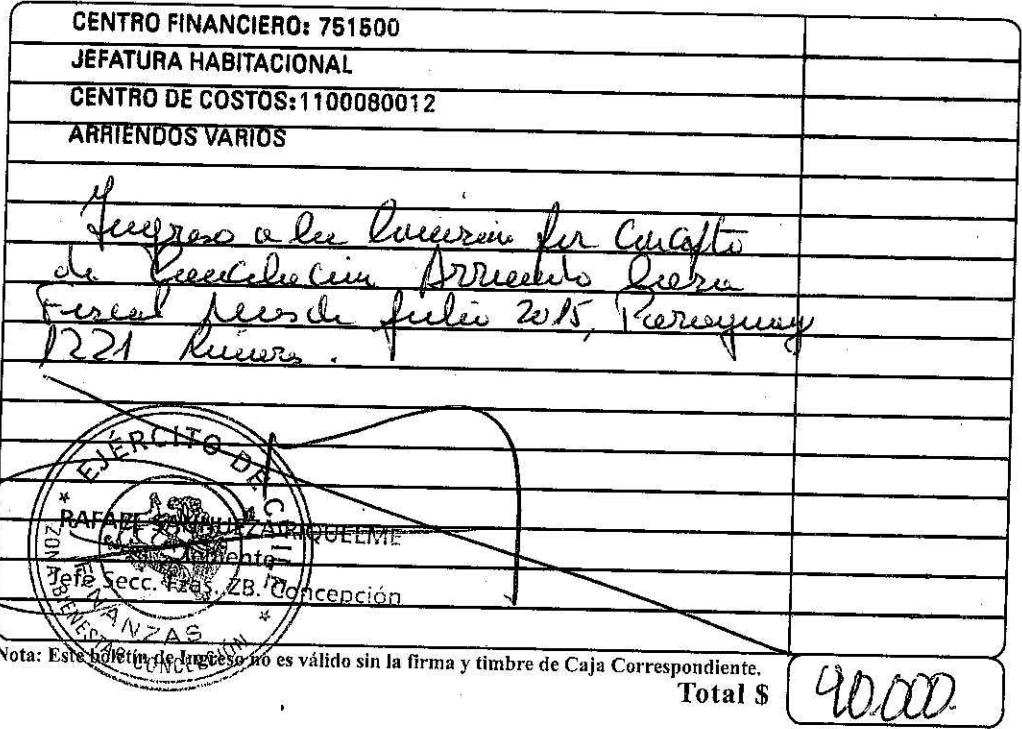 CENTRO FINANCIERO: 751500
JEFATURA HABITACIONAL
CENTRO DE COSTOS:1100080012
ARRIENDOS VARIOS
Ingreso a la por Concepto
de Arriendo Casa
Fiscal mes de Julio 2015, Paraguay
1221
EJÉRCITO DE CHILE
RAFAEL SANHUEZA RIQUELME
Jefe Secc. Fzas. ZB. Concepción
FINANZAS
ZONA BIENESTAR CONCEPCIÓN
Nota: Este boletín de Ingreso no es válido sin la firma y timbre de Caja Correspondiente.
Total $ 90.000.